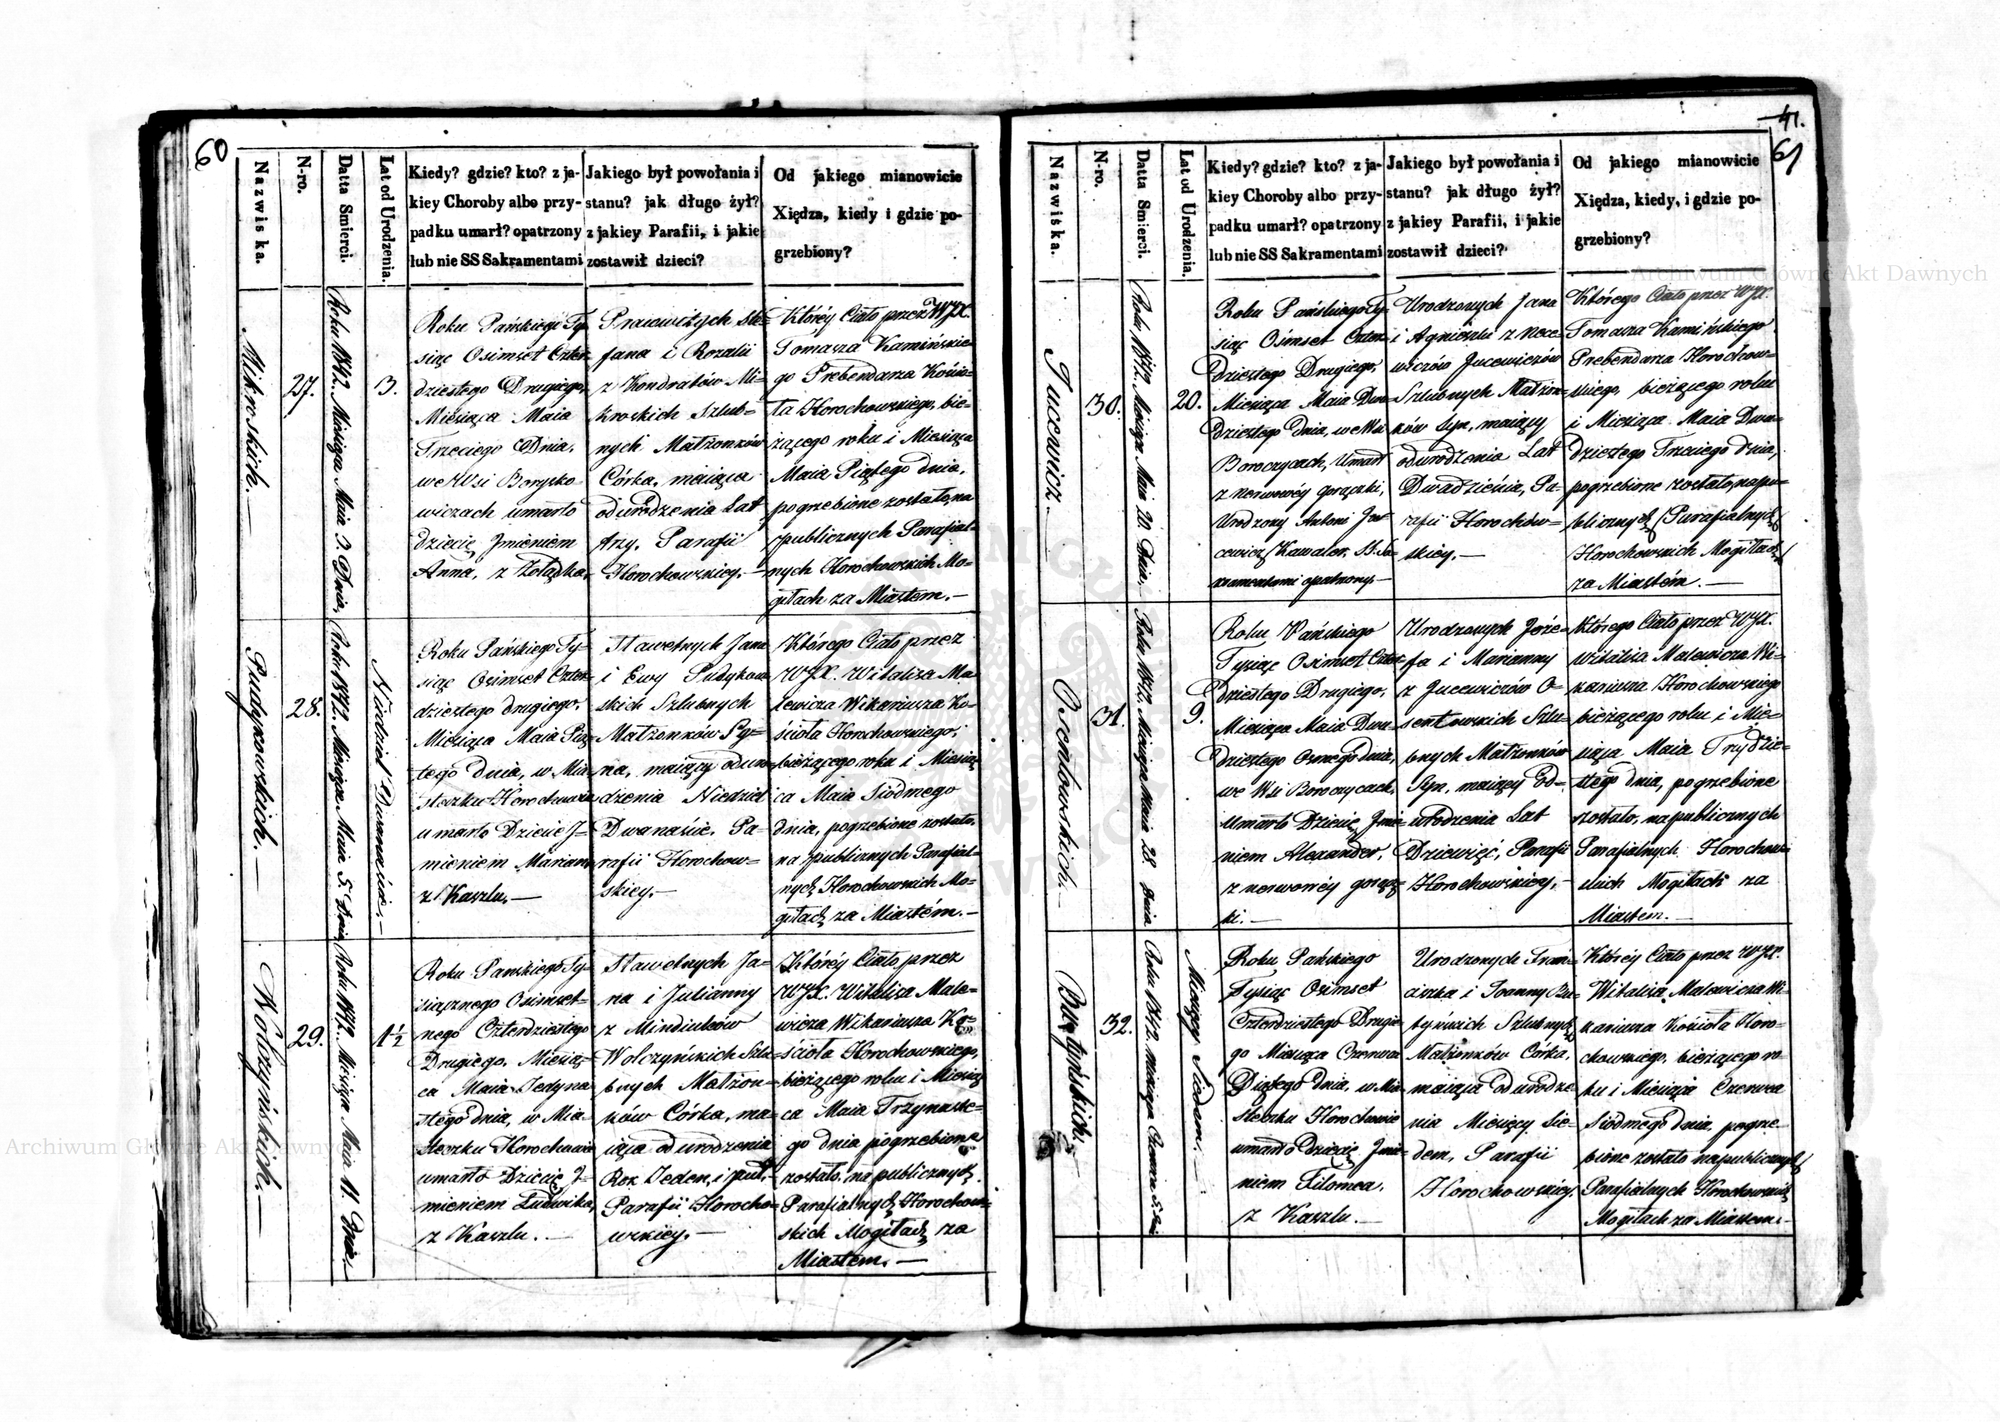 60
Nazwiska.
N-ro.
Datta Smierci.
Lat od Urodzenia.
Kiedy? gdzie? kto? z ja-
kiey Choroby albo przy-
padku umarł? opatrzony
lub nie SS Sakramentami
Jakiego był powołania i
stanu? jak długo żył?
z jakiey Parafii, i jakie
zostawił dzieci?
Od jakiego mianowicie
Xiędza, kiedy i gdzie po-
grzebiony?
Mikroskich.—
27.
Roku 1842. Miesiąca Maia 3. Dnia.
3.
Roku Pańskiego Ty-
siąc Osimset Czter-
dziestego Drugiego,
Miesiąca Maia
Trzeciego Dnia,
we Wsi Borysko-
wiczach umarło
dziecię Jmieniem
Anna, z Żołądka.
Pracowitych
Jana i Rozalii
z Kondratów Mi-
kroskich Szlub-
nych Małżonków
Córka, maiąca
od urodzenia Lat
trzy. Parafii
Horochowskiey.—
Któréy Ciało przez WJX.
Tomasza Kamińskie-
go Prebendarza Kościo-
ła Horochowskiego, bie-
żącego roku i Miesiąca
Maia Piątego dnia,
pogrzebione zostało, na
publicznych Parafial-
nych Horochowskich Mo-
giłach za Miastem.—
Pudykowskich.—
28.
Roku 1842. Miesiąca Maia 5. Dnia
Niedziel Dwanaście.—
Roku Pańskiego Ty-
siąc Osimset Czter-
dziestego drugiego,
Miesiąca Maia Pią-
tego dnia, w Mia-
steczku Horochowie
umarło Dziecie J-
mieniem Marian
z Kaszlu.—
Sławetnych Jana
i Ewy Pudykow-
skich Szlubnych
Małżonków Sy-
na, maiący od uro-
dzenia Niedziel
Dwanaście. Pa-
rafii Horochow-
skiey.—
Którego Ciało przez
WJX. Witalisa Ma-
lewicza Wikariusza Ko-
ścioła Horochowskiego,
bieżącego roku i Miesią-
ca Maia Siodmego
dnia, pogrzebione zostało,
na publicznych Parafial-
nych Horochowskich Mo-
giłach za Miastém.—
Wolczyńskich.—
29.
Roku 1842. Miesiąca Maia 11. Dnia.
1½
Roku Panskiego Ty-
siącznego Osimset-
nego Czterdziestego
Drugiego, Miesią-
ca Maia Jedyna-
stego dnia, w Mia-
steczku Horochowie
umarło Dziecię J-
mieniem Ludwika,
z Kaszlu.—
Sławetnych Ja-
na i Julianny
z Mindiuków
Wolczyńskich Szlu-
bnych Małżon-
ków Córka, ma-
iąca od urodzenia
Rok Jeden, i puł,-
Parafii Horocho-
wskiey.—
Któréy Ciało przez
WJX. Witalisa Male-
wicza Wikariusza Ko-
ścioła Horochowskiego,
bieżącego roku i Miesią-
ca Maia Trzynaste-
go dnia pogrzebione
zostało, na publicznych
Parafialnych Horochow-
skich Mogiłach za
Miastem.—
41.
61
Nazwiska.
N-ro.
Datta Smierci.
Lat od Urodzenia.
Kiedy? gdzie? kto? z ja-
kiey Choroby albo przy-
padku umarł? opatrzony
lub nie SS Sakramentami
Jakiego był powołania i
stanu? jak długo żył?
z jakiey Parafii, i jakie
zostawił dzieci?
Od jakiego mianowicie
Xiędza, kiedy, i gdzie po-
grzebiony?
Jucewicz.—
30.
Roku 1842. Miesiąca Maia 20. Dnia.
20.
Roku Pańskiego Ty-
siąc Osimset Czter-
dziestego Drugiego,
Miesiąca Maia Dwu-
dziestego dnia, we Wsi
Boroczycach, Umarł
z nerwowéy gorączki,
Urodzony Antoni Ju-
cewicz Kawaler. SS. Sa-
kramentami opatrzony.—
Urodzonych Jana
i Agnieszki z
Jucewiczów
Szlubnych Małżon-
ków Syn, maiący
od urodzenia Lat
Dwadzieścia, Pa-
rafii Horochow-
skiey.—
Którego Ciało przez WJX.
Tomasza Kamińskiego
Prebendarza Horochow-
skiego, bieżącego roku
i Miesiąca Maia Dwu-
dziestego Trzeciego dnia,
pogrzebione zostało, na pu-
blicznych Parafialnych
Horochowskich Mogiłach
za Miastém.—
Osentowskich.—
31.
Roku 1842. Miesiąca Maia 28. Dnia
9.
Roku Pańskiego
Tysiąc Osimset Czter-
dziestego Drugiego,
Miesiąca Maia Dwu-
dziestego Osmego dnia,
we Wsi Boroczycach,
Umarło Dziecię Jmie-
niem Alexander,
z nerwowéy gorącz-
ki.—
Urodzonych Józe-
fa i Marianny
z Jucewiczów O-
sentowskich Szlu-
bnych Małżonków
Syn, maiący Od-
urodzenia Lat
Dziewięć, Parafii
Horochowskiey.—
Którego Ciało przez WJX.
Witalisa Malewicza Wi-
kariusza Horochowskiego
bieżącego roku i Mie-
siąca Maia Trzydzie-
stego dnia, pogrzebione
zostało, na publicznych
Parafialnych Horochow-
skich Mogiłach za
Miastem.—
Butyńskich.—
32.
Roku 1842. Miesiąca Czerwca 5. Dnia
Miesięcy Siedem.—
Roku Pańskiego
Tysiąc Osimset
Czterdziestego Drugie-
go Miesiąca Czerwca
Piątego dnia, w Mia-
steczku Horochowie
umarło Dziecię Jmie-
niem Filomea,
z Kaszlu.—
Urodzonych Fran-
ciszka i Joanny Bu-
tyńskich Szlubnych
Małżonków Córka,
maiąca od urodze-
nia Miesięcy Sie-
dem, Parafii
Horochowskiey
Któréy Ciało przez WJX.
Witalisa Malewicza Wi-
kariusza Kościoła Horo-
chowskiego, bieżącego ro-
ku i Miesiąca Czerwca
Siódmego dnia, pogrze-
bione zostało na publicznych
Parafialnych Horochowskich
Mogiłach za Miastem.
Archiwum Główne Akt Dawnych
Archiwum Główne Akt Dawnych